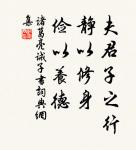 夫君子之行
靜以修身
儉以養德
諸葛亮誡子書詞典網
集